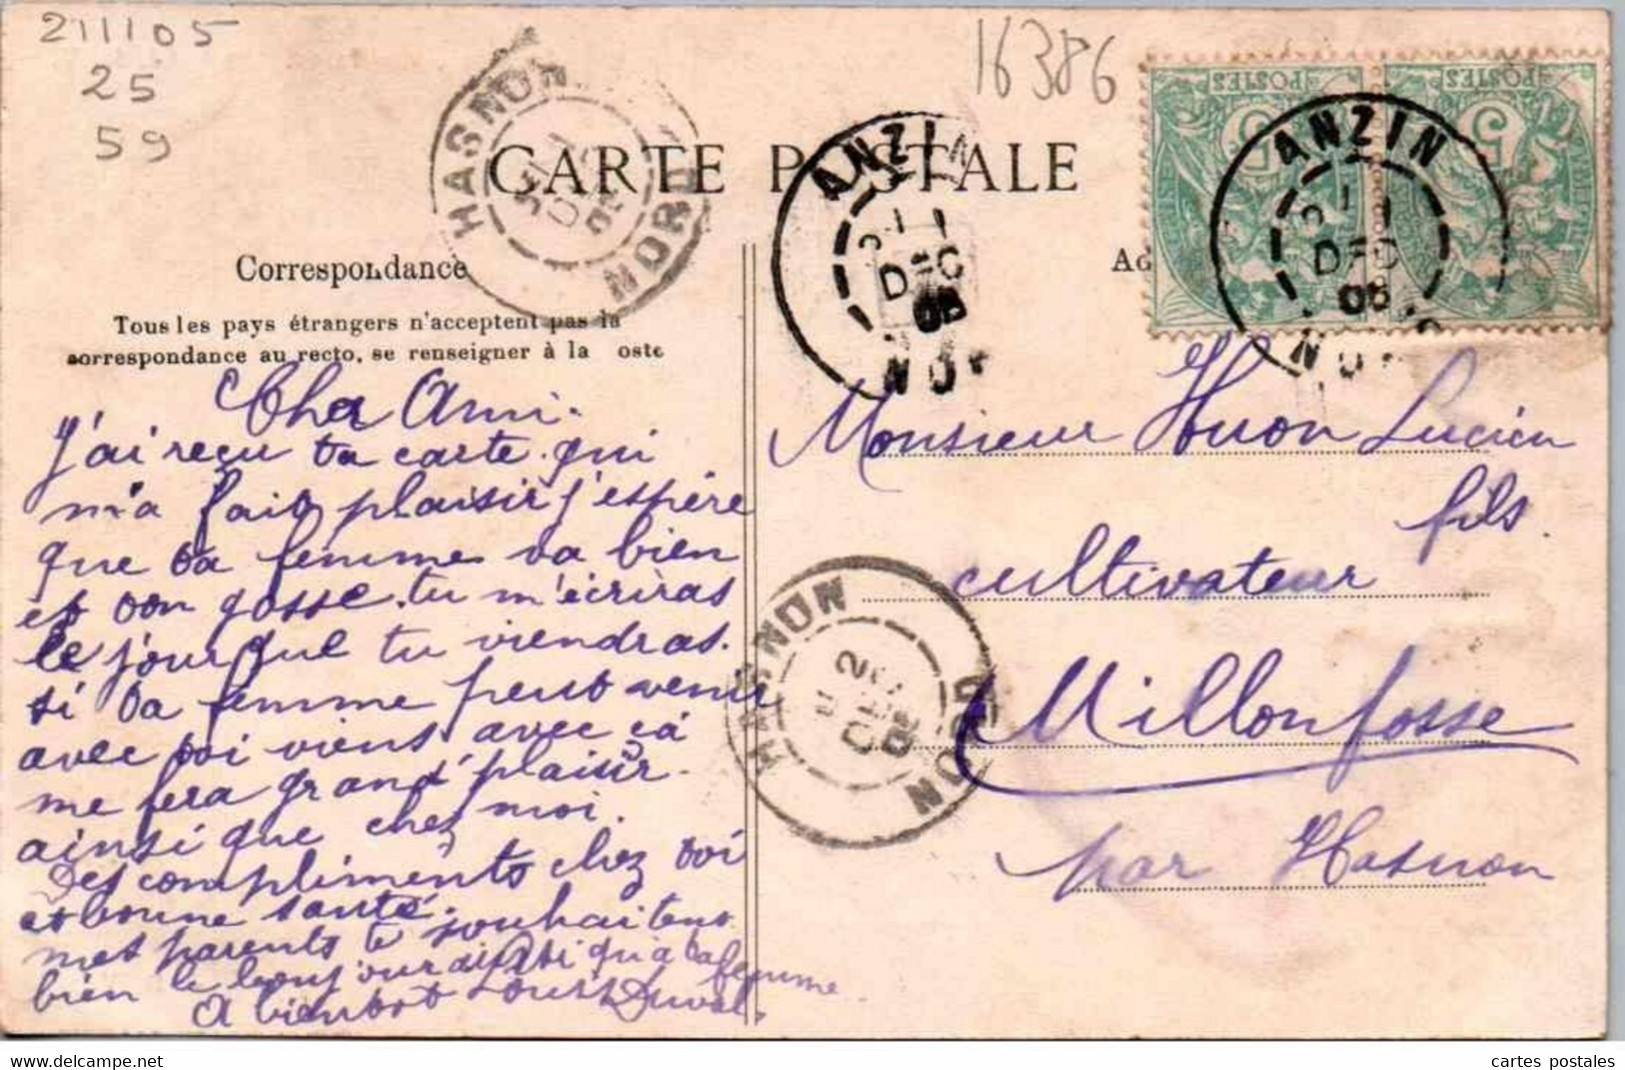 211105
25
59
16386
CARTE POSTALE
HASNON
NORD
ANZIN
DEC
06
ANZIN
DEC
06
POSTES
POSTES
5
5
Correspondance
Tous les pays étrangers n'acceptent pas la
correspondance au recto, se renseigner à la oste
Cher Ami.
J'ai reçu ta carte qui
m'a fait plaisir j'espère
que ta femme va bien
et ton gosse. tu m'écriras
le jour que tu viendras.
si ta femme peut venir
avec toi viens avec çà
me fera grand plaisir.
ainsi que chez moi.
Des compliments chez toi
et bonne santé.
mes parents te souhaitent
bien le bonjour ainsi qu'à ta femme
A bientot Louis Duval.
Monsieur Huon Lucien
fils.
cultivateur
Millonfosse
par Hasnon
HASNON
NORD
cartes postales